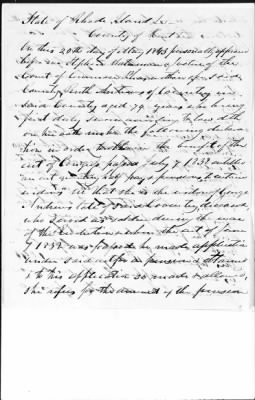 State of Rhode Island &c
County of Kent
On this 20th day of May 1843 personally appeared
before me Stephen Waterman a Justice of the
Court of Common Pleas within & for said
County Ruth Andrews of Coventry in
said County aged 79 years who being
first duly sworn according to law doth
on her oath make the following declara
tion in order to obtain the benefit of the
act of Congress passed July 7 1838 entitled
an act granting half pay & pensions to certain
widows That she is the widow of George
Andrews late of said Coventry deceased
who served as a soldier during the war
of the revolution & when the act of June
7 1832 was passed he made application
under said act for a pension &
to his application so made & allowed
she refers for the amount of the pension